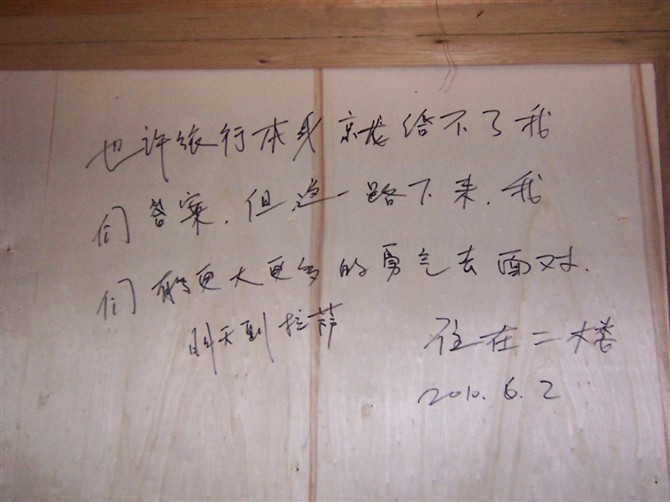 也许旅行本身就给不了我
们答案.但这一路下来.我
们有更大更多的勇气去面对.
明天到拉萨
住在二楼
2010.6.2